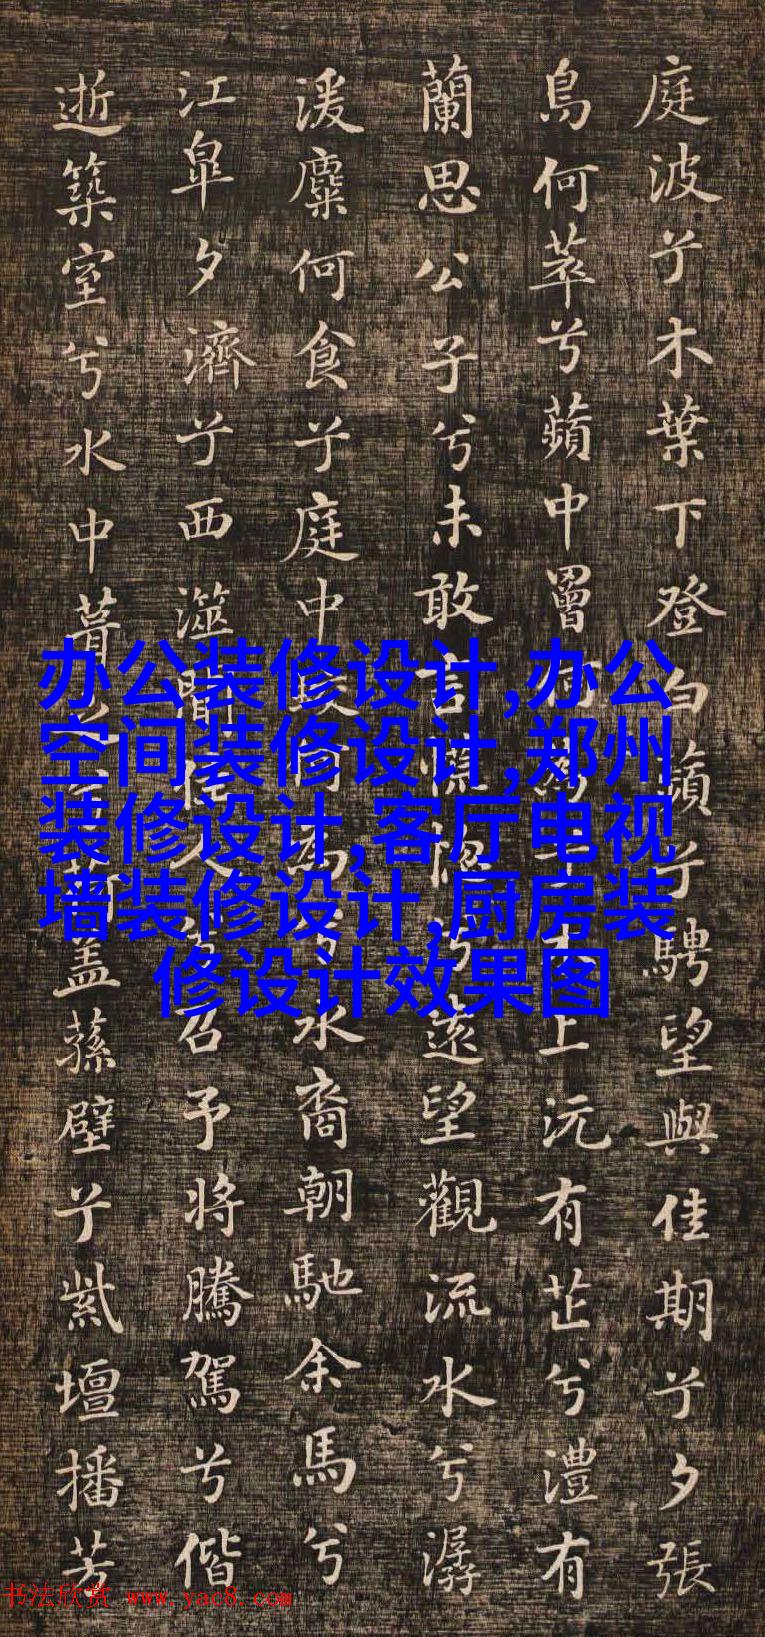 庭波兮木葉下登白蘋兮騁望與佳期兮夕張
鳥何萃兮蘋中罾何為兮木上沅有芷兮澧有
蘭思公子兮未敢言慌惚兮遠望觀流水兮潺
湲麋何食兮庭中蛟何為兮水裔朝馳余馬兮
江皋夕濟兮西澨聞佳人兮召予將騰駕兮偕
逝築室兮水中葺之兮荷蓋蓀壁兮紫壇播芳
办公装修设计,办公
空间装修设计,郑州
装修设计,客厅电视
墙装修设计,厨房装
修设计效果图
书法欣赏 www.yac8.com